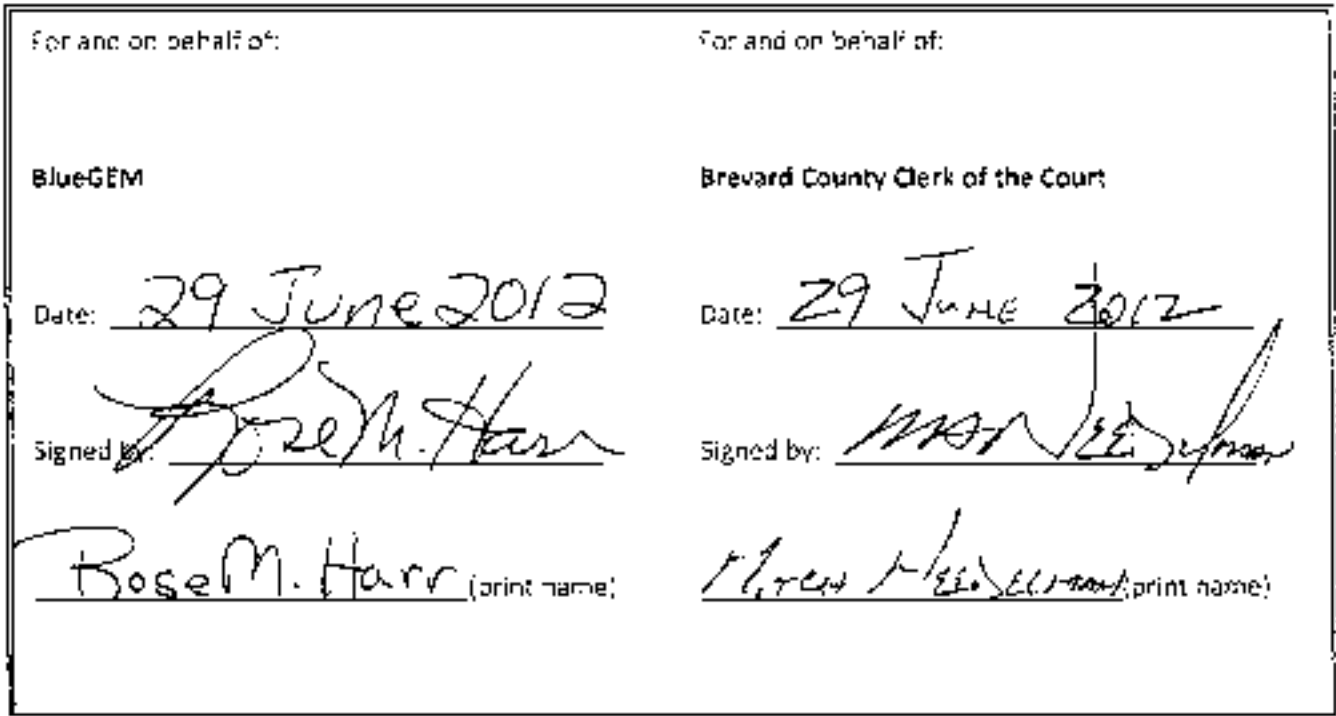 For and on behalf of:
BlueGEM
Date: 29 June 2012
Signed by: Rose M. Harr
Rose M. Harr (print name)
For and on behalf of:
Brevard County Clerk of the Court
Date: 29 June 2012
Signed by:
(print name)